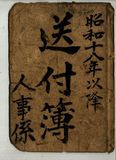 昭和十八年以降
送付簿
人事係